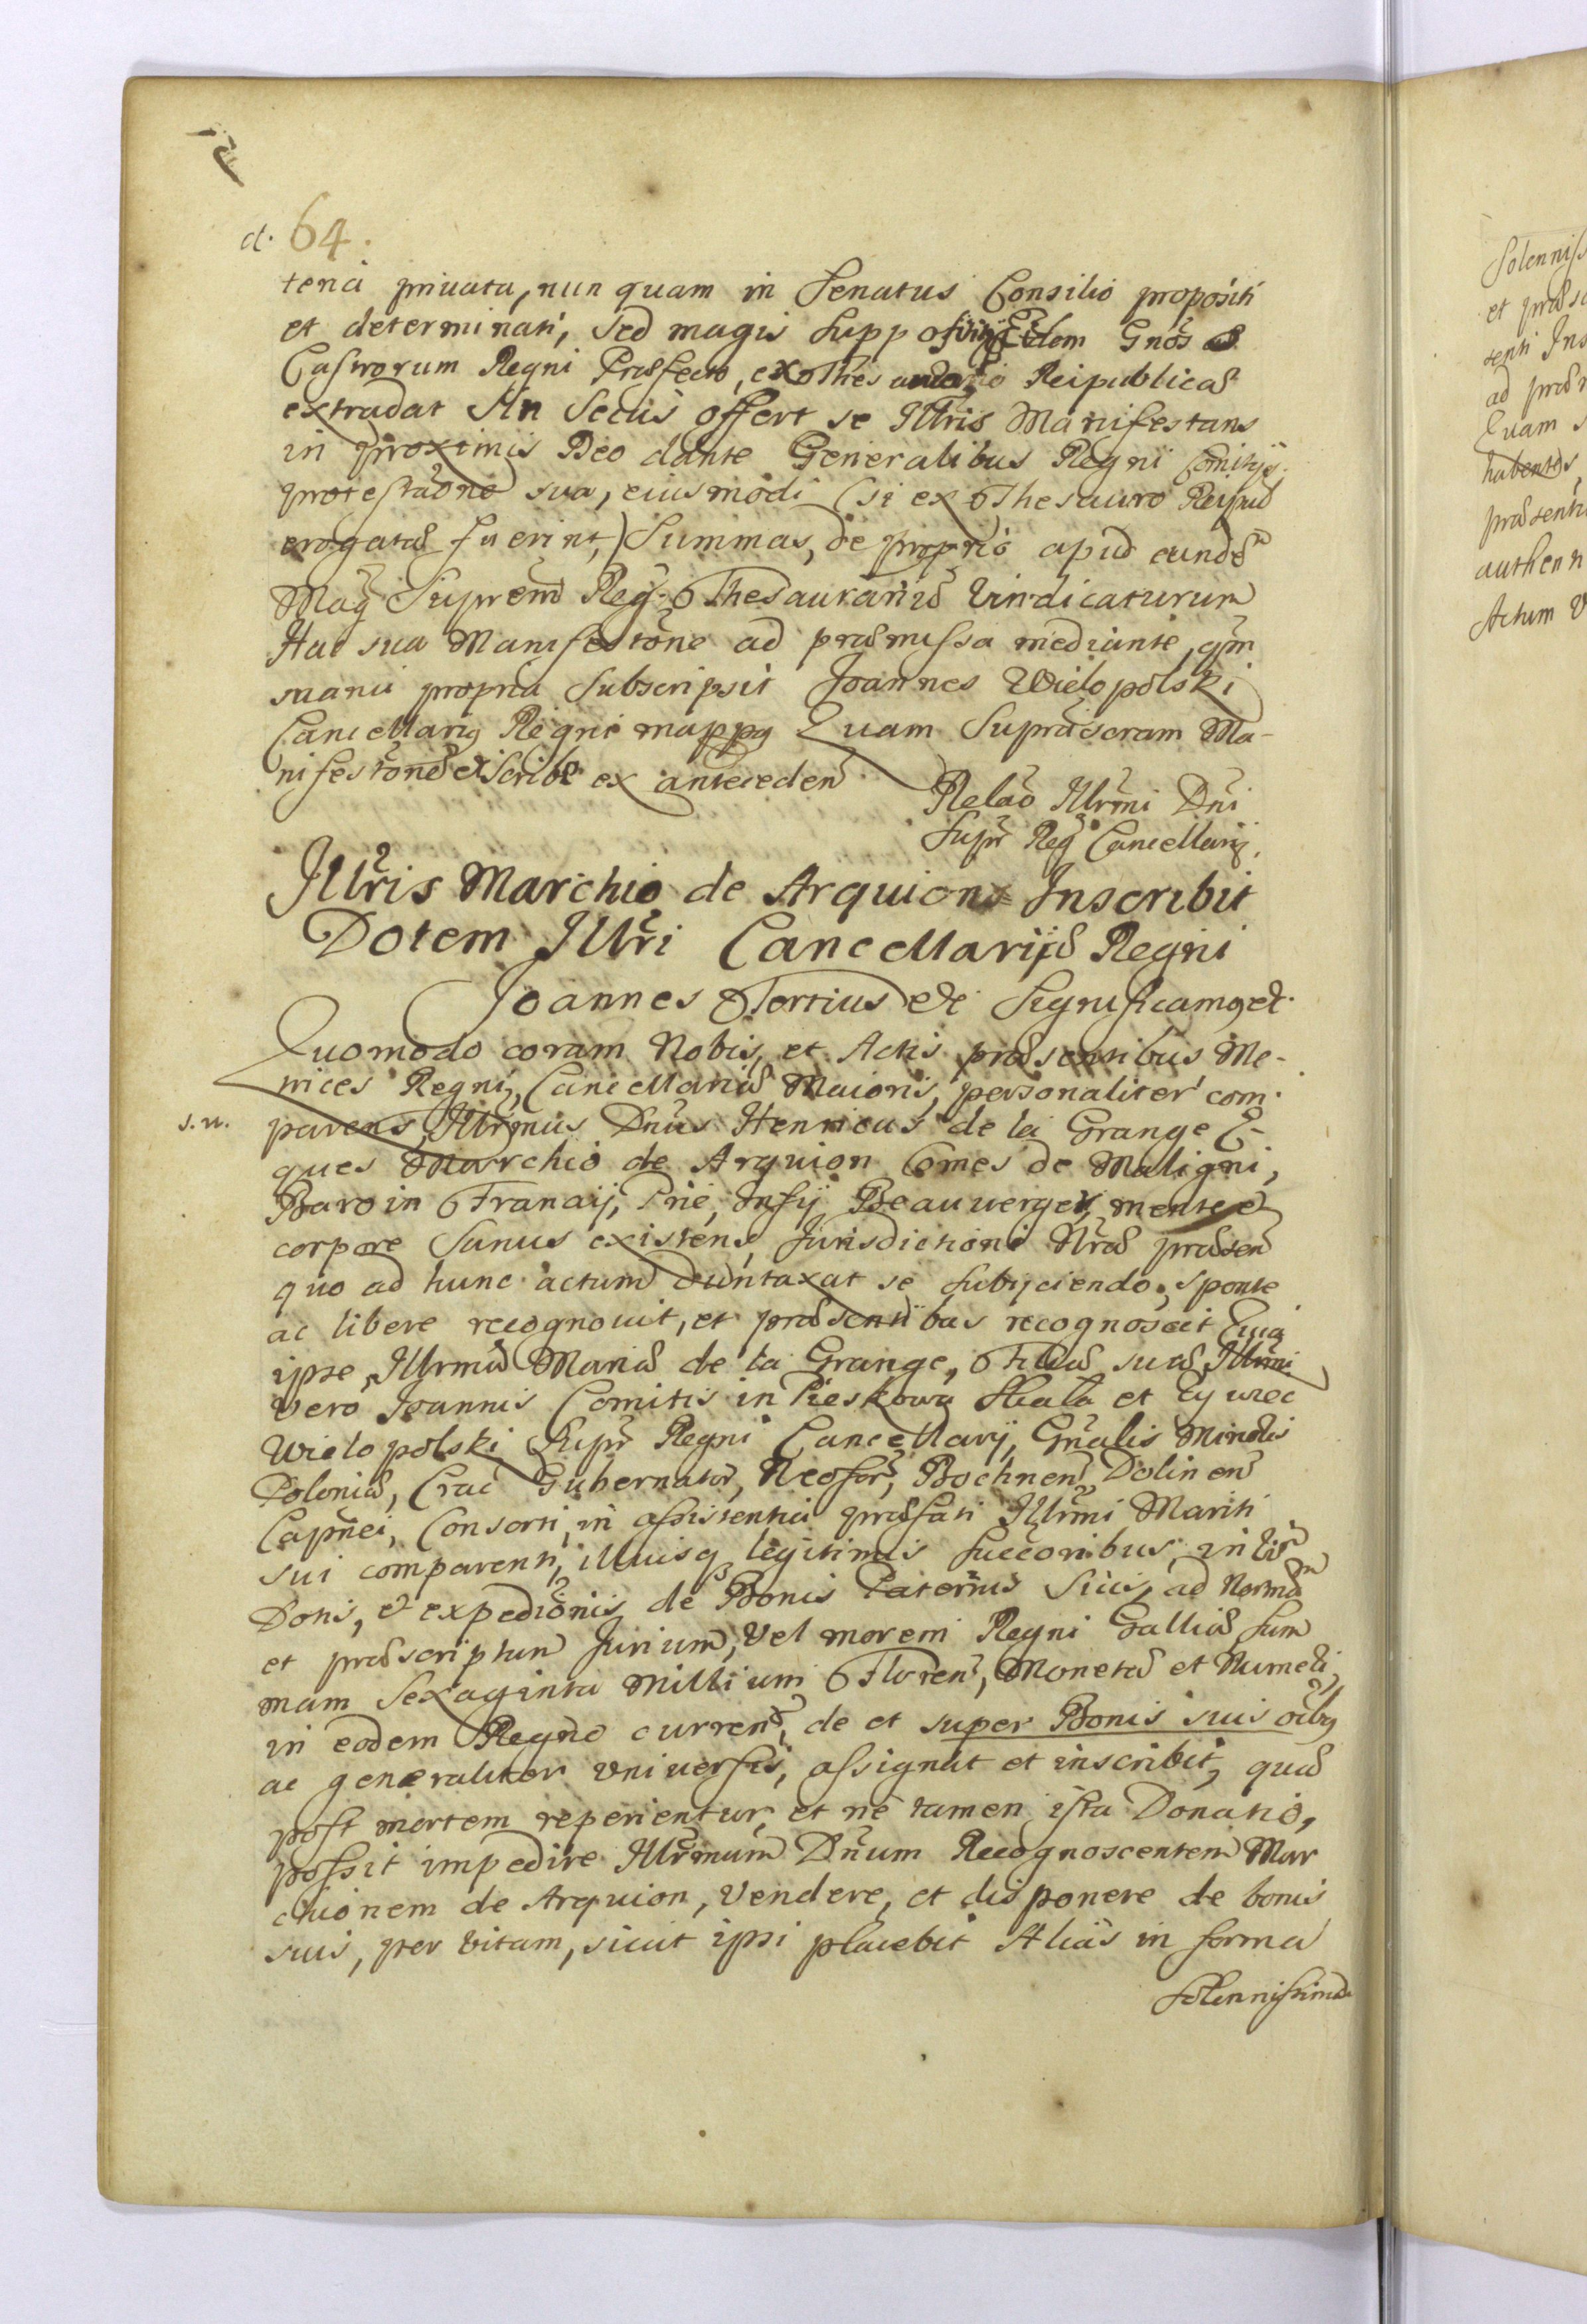 ct. 64.
tena priuata, nun quam in Senatus Consilio propositi
et determinati, sed magis Supp Eidem Gnõs
Castrorum Regni Præfecto, ex Thes Reipublicæ
extradat An Secus offert se Illris Manifestans
in proximis Deo dante Generalibus Regni Comitijs
protestaõne sua, eiusmodi (si ex Thesauro Reipub
erogatæ fuerint,) Summas, de proprio apud eundẽ
Mag Suprem Reg. Thesaurariũ Vindicaturum
Hac sua Manifestõne ad præmissa mediante, qm
manu propria Subscripsit Joannes Wielopolski
Cancellarig Regni mappg Quam Supraseram Ma-
nifestõnẽ et Scribæ ex anteceden
Relaõ Illrmi Dni
Supr Reg Cancellarij.
Illris Marchio de Arquion Inscribit
Dotem Illri Cancellarijæ Regni
Joannes Tertius etc Significamg et.
Quomodo coram Nobis, et Actis præsentibus Me-
trices Regni, Cancellariæ Maioris, personaliter com-
s.n. parens, Illrmus Dnus Henricus de la Grange E-
ques Marchio de Arquion Comes de Maligni,
Baro in Franaij, Prie, Insij Beauverger, mente et
corpore Sanus existens, Jurisdictioni Nræ præsen
quo ad hunc actum duntaxat se Subijciendo, sponte
ac libere recognouit, et præsentibus recognoscit Quia
ipse, Illrmæ Mariæ de la Grange, Filiæ suæ, Illrmi
vero Joannis Comitis in Pieskowa Skala et Zywiec
Wielopolski Supr Regni Cancellarij, Gnalis Minoris
Poloniæ, Crac Gubernator, Neofor, Bochnen, Dolinen
Capnei, Consorti, in assistentia præfati Illrmi Mariti
sui comparenti, illiusq legitimis succoribus, in
Dotis, et expediõnis de Bonis Paternis Suis, ad Normam
et præscriptum Jurium, Vel morem Regni Galliæ Sum
mam Sexaginta Millium Floren, Monetæ et Numeri,
in eodem Regno curren, de et super Bonis suis oibg
ac generaliter vniuersis, assignat et inscribit, quæ
post mortem reperientur, et ne tamen ista Donatio,
possit impedire Illrmum Dnum Recognoscentem Mar
chionem de Arquion, Vendere, et disponere de bonis
suis, per vitam, sicut ipsi placebit Alias in forma
Solennissima
Solenniss
et præse
senti Ins
ad præ
Quam s
habentes,
præsenti
authenti
Actum V